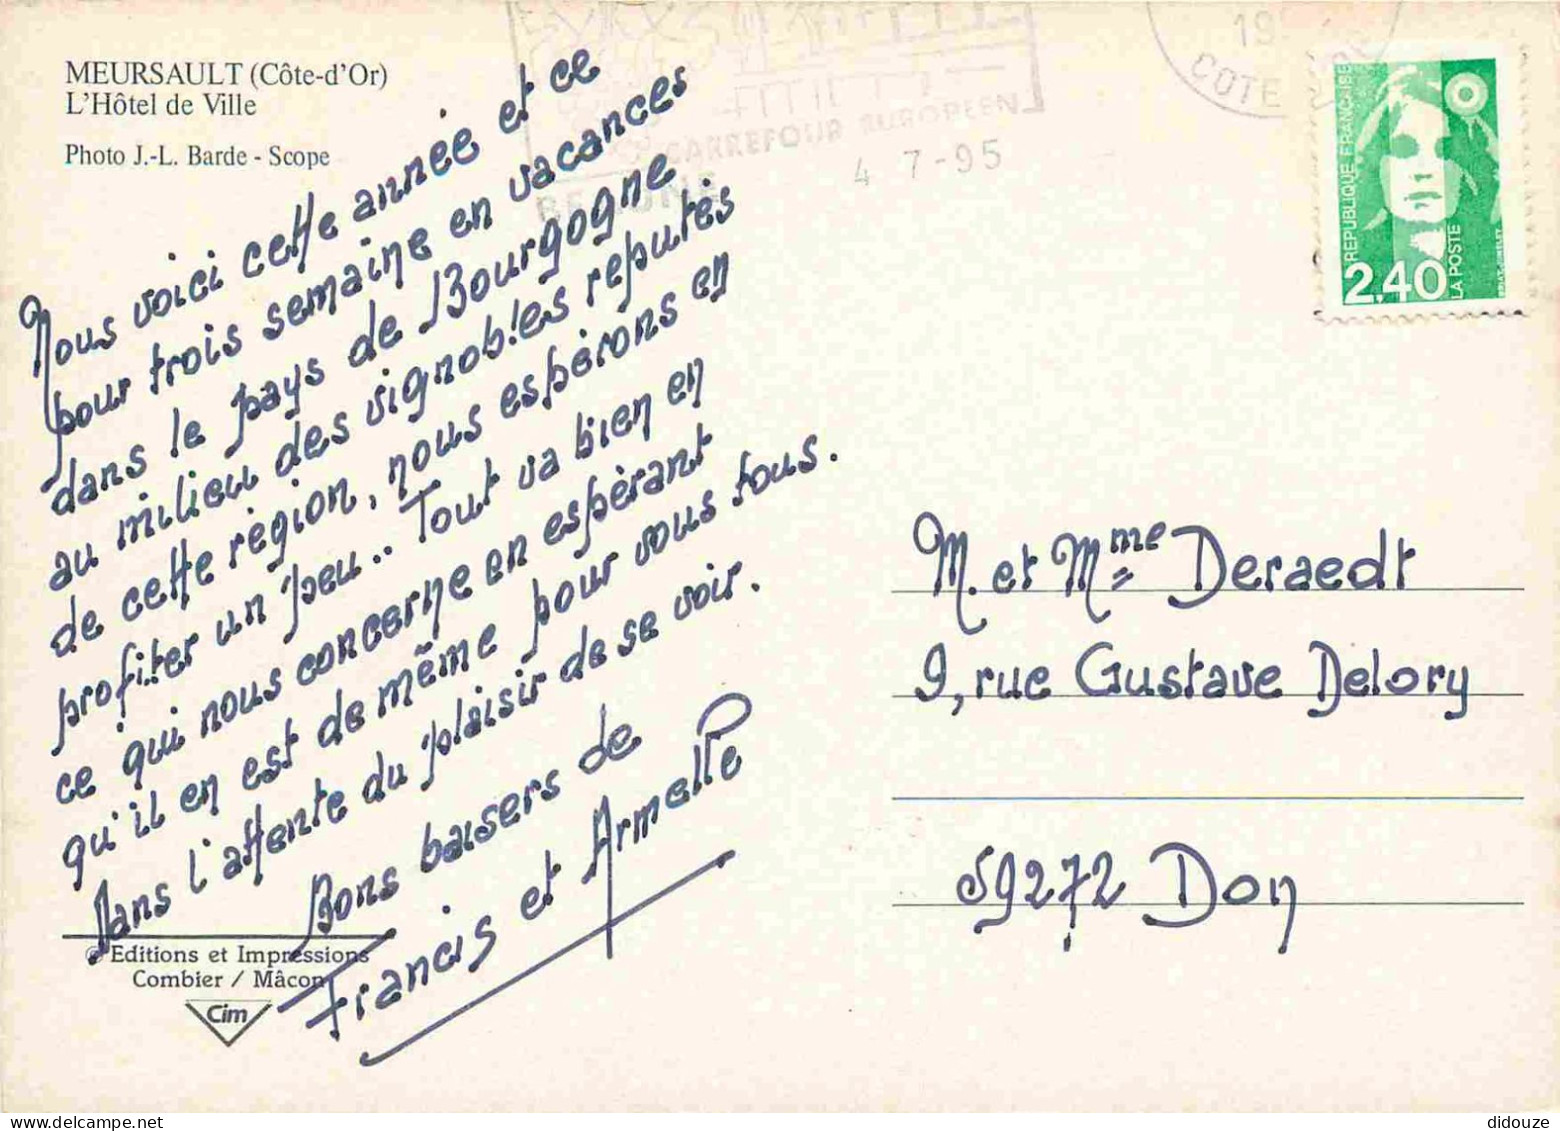 MEURSAULT (Côte-d'Or)
L'Hôtel de Ville
Photo J.-L. Barde - Scope
Nous voici cette année et ce
pour trois semaine en vacances
dans le pays de Bourgogne
au milieu des vignobles reputés
de cette région, nous espèrons en
profiter un peu.. Tout va bien en
ce qui nous concerne en espèrant
qu'il en est de même pour vous tous.
Dans l'attente du plaisir de se voir.
Bons baisers de
Francis et Armelle
© Editions et Impressions
Combier / Mâcon
Cim
CARREFOUR EUROPEEN
BEAUNE
4 7-95
COTE
REPUBLIQUE FRANÇAISE
2,40
LA POSTE
M. et Mme Deraedt
9, rue Gustave Delory
59272 Don
didouze